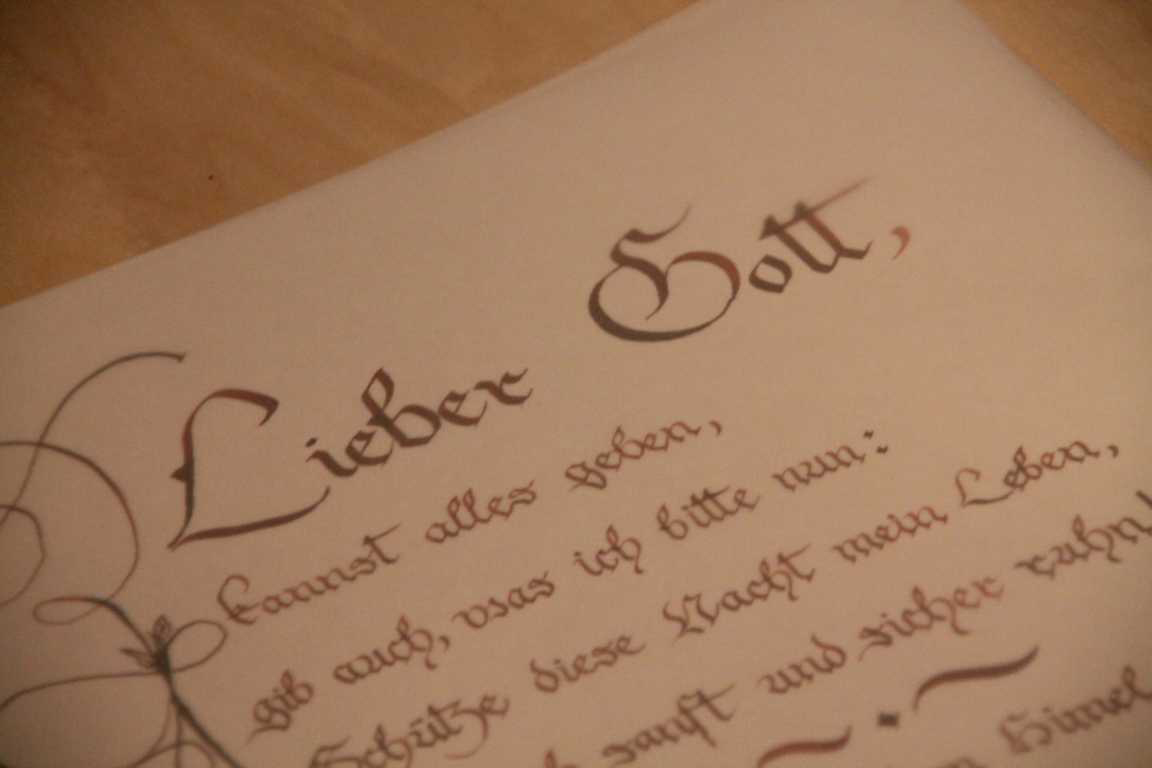 Lieber Gott,
kannst alles geben,
gib auch, was ich bitte nun:
Schütze diese Nacht mein Leben,
sanft und sicher ruhn!
Himmel